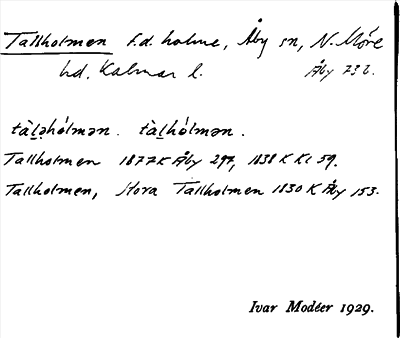 Tallholmen f.d. holme, Åby sn, N. Möre
hd, Kalmar l. Åby 232.
tàḷəhólmən. tàḷhólmən.
Tallholmen 1877 K Åby 297, 1838 K Kl 59.
Tallholmen, Stora Tallholmen 1830 K Åby 153.
Ivar Modéer 1929.